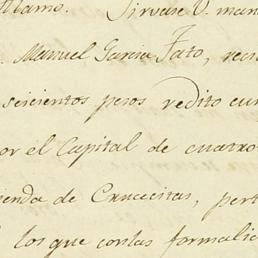 Alamo. Sirvase V. man
Manuel Garcia Fato, reci
seicientos pesos redito cum
or el Capital de cuatro
ienda de Crucecitas, pert
los que con las formalid